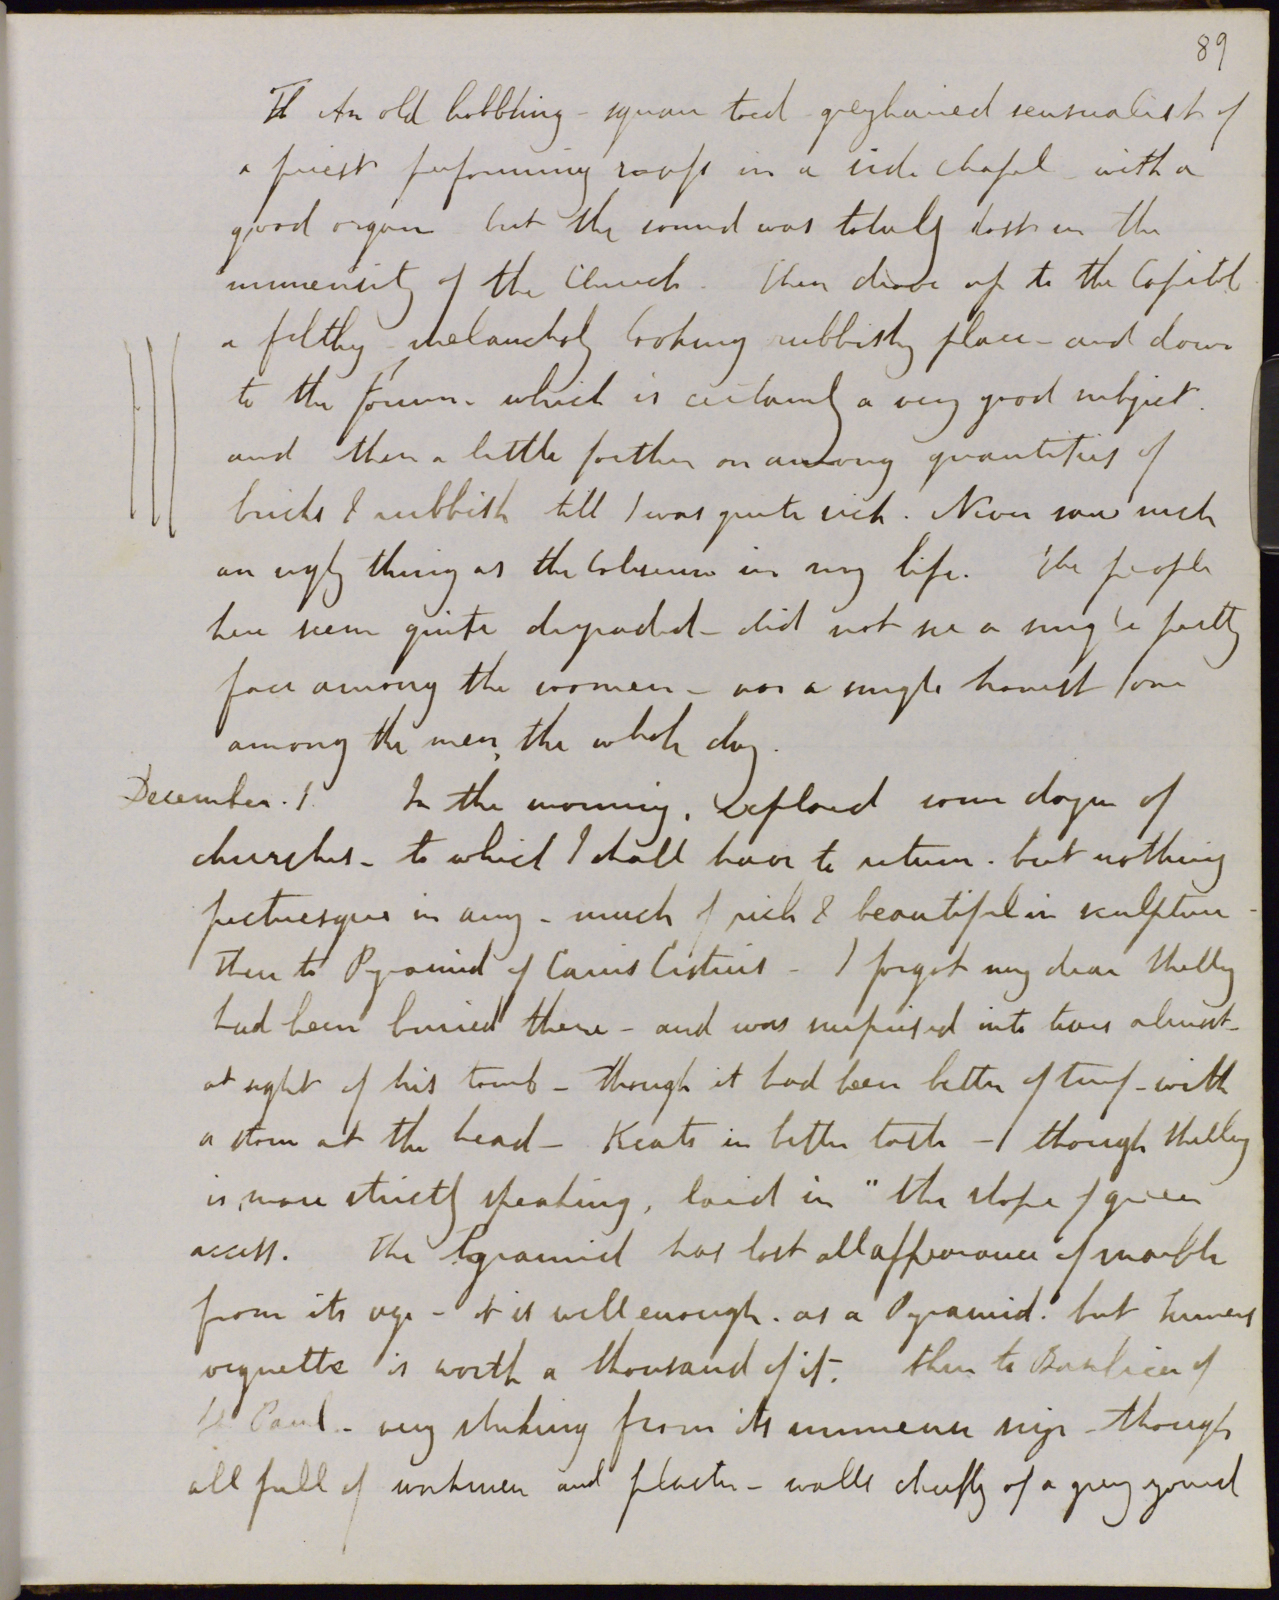 89
An old hobbling - square toed greyhaired sensualist of
a priest performing in a side chapel with a
good organ but the sound was totally lost in the
immensity of the Church. Then drove up to the Capitol
a filthy melancholy looking rubbishy place - and down
to the forum - which is certainly a very good subject.
and then a little farther on among quantities of
bricks & rubbish till I was quite sick. Never saw such
an ugly thing as the Coliseum in my life. The people
here seem quite degraded - did not see a single pretty
face among the women - nor a single honest one
among the men, the whole day.
December. 1. In the morning, explored some dozen of
churches - to which I shall have to return. but nothing
picturesque in any - much of rich & beautiful in sculpture -
then to Pyramid of Caius Cestius - I forgot my dear Shelley
had been buried there - and was surprised into tears almost -
at sight of his tomb - though it had been better of turf - with
a stone at the head - Keats in better taste - though Shelley
is, more strictly speaking, laid in "the slope of green
access. The Pyramid has lost all appearance of marble
from its age - it is well enough. as a Pyramid. but Turners
vignette is worth a thousand of it. then to Basilica of
St Paul - very striking from its immense size - though
all full of workmen and plaster - walls chiefly of a grey